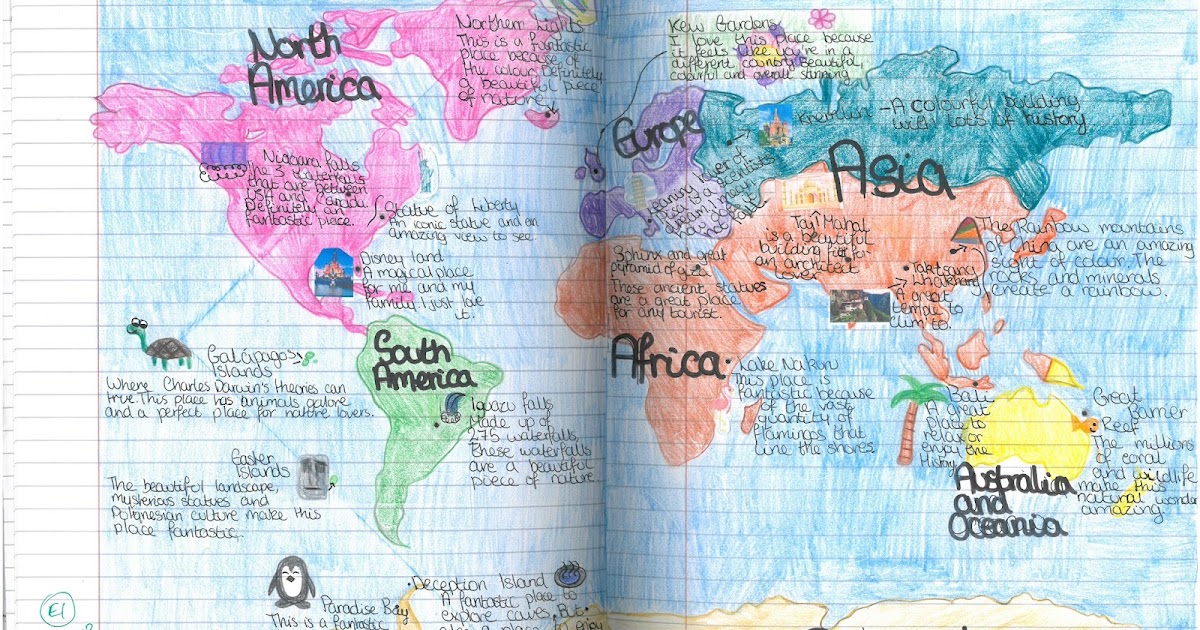 North
America
Northern Lights
This is a fantastic
place because of
the colour. Definitely
a beautiful piece
of nature.
Niagara falls
The 3 waterfalls
that are between
USA and Canada.
Definitely an
fantastic place.
Statue of Liberty
An iconic statue and an
amazing view to see.
Disney land
A magical place
for me and my
family. I just love
it.
Galápagos
Islands
Where Charles Darwin's theories can
true. This place has animals galore
and a perfect place for nature lovers.
South
America
Iguazu falls
Made up of
275 waterfalls,
these waterfalls
are a beautiful
piece of nature.
Easter
Islands
The beautiful landscape,
mysterious statues and
Polynesian culture make this
place fantastic.
Paradise Bay
This is a fantastic
Deception Island
A fantastic place to
explore caves. But
also a place to enjoy
E1
Kew Gardens
I love this place because
it feels like you're in a
different country. Beautiful,
colorful and overall stunning
Europe
Leaning
Pisa
Asia
-A colourful building
with lots of history.
Taj Mahal
is a beautiful
building fit for
an architect
lover.
The Rainbow mountains
of China are an amazing
sight of colour. The
rocks and minerals
create a rainbow.
Taktsang
A great
temple to
clim to.
Sphinx and great
pyramid of
These ancient statues
are a great place
for any tourist.
Africa
Lake Nakuru
This place is
fantastic because
of the vast
quantity of
flamingos that
line the shores
Bali
A great
plate to
relax or
enjoy the
History
Great
Barrier
Reef
The millions
of coral
and wildlife
make this
natural wonder
amazing.
Australia
and
Oceania